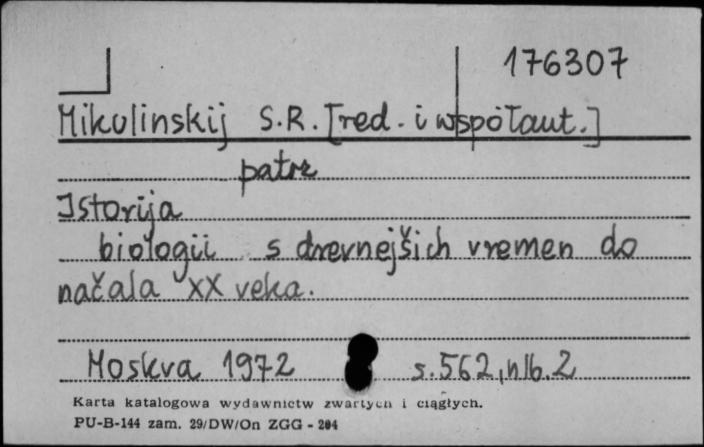 176307
Mikulinskij S.R. [red. i współaut.]
patrz
Istorija
biologii s drevnejšich vremen do
načala XX veka.
Moskva 1972 s. 562, nlb. 2
Karta katalogowa wydawnictw zwartych i ciągłych.
PU-B-144 zam. 29/DW/On ZGG - 204